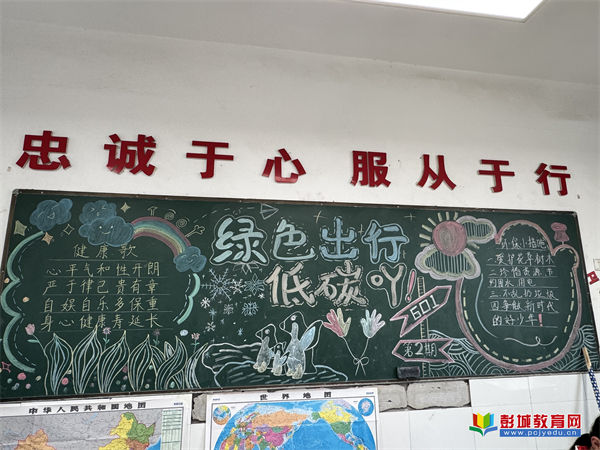 忠诚于心 服从于行
健康歌
心平气和性开朗
严于律己贵有章
自娱自乐多保重
身心健康寿延长
绿色出行
低碳吖!
601
第2期
环保小措施
一、爱护花草树木
二、珍惜资源节
约用水用电
三不乱扔垃圾
四争做新时代
的好少年!
中华人民共和国地图
世界地图
彭城教育网
www.pcjyedu.cn